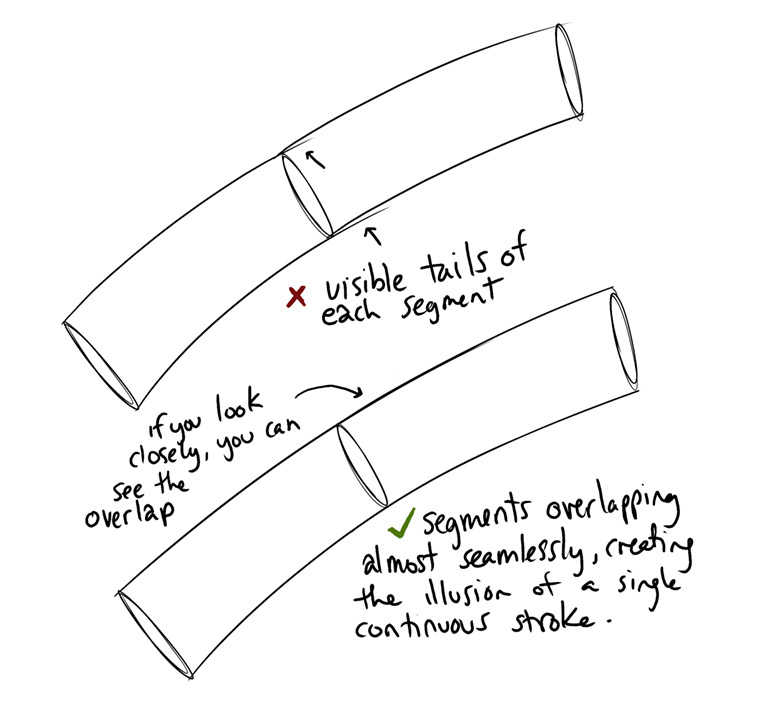 x visible tails of
each segment
if you look
closely, you can
see the
overlap
✓ segments overlapping
almost seamlessly, creating
the illusion of a single
continuous stroke.